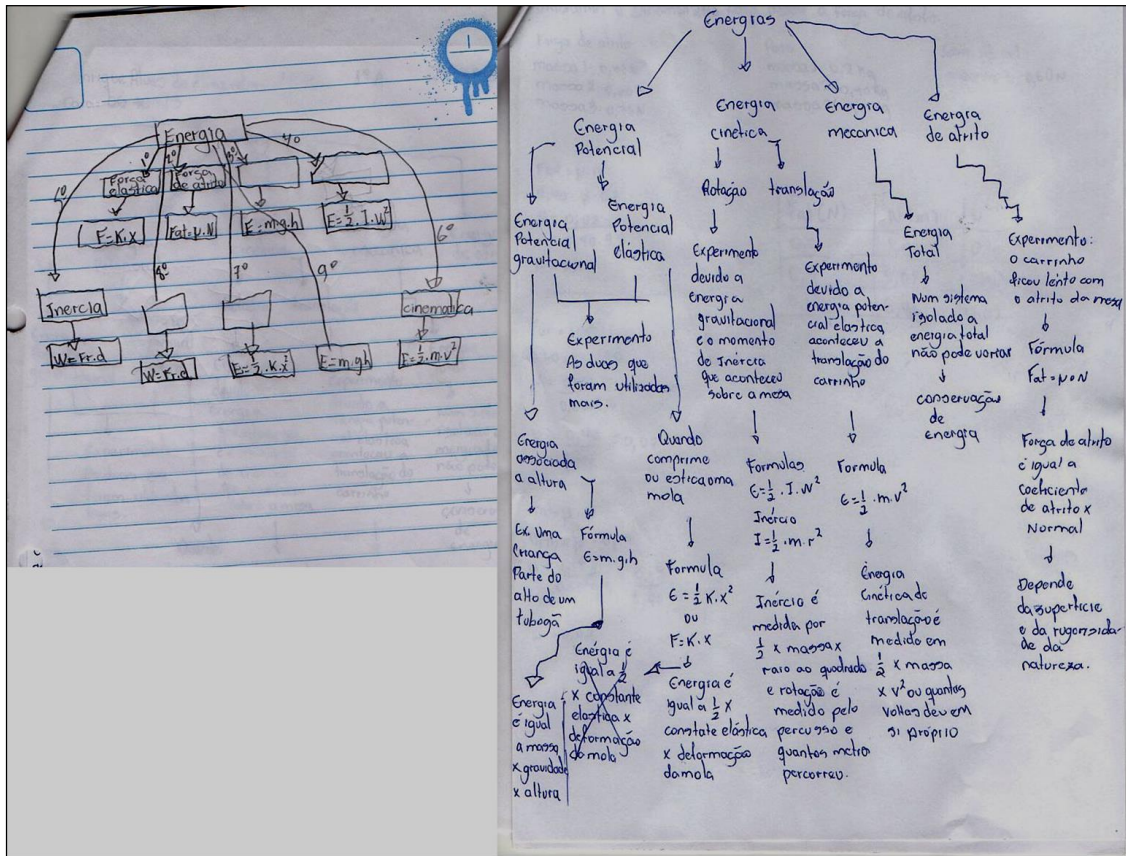 1
Energia
1º
2º
3º
4º
5º
Força
elastica
Força
de atrito
F=K.x
Fat=µ.N
E=m.g.h
E=½.I.W²
6º
8º
7º
9º
Inercia
cinematica
W=Fr.d
W=Fr.d
E=½.K.x²
E=m.g.h
E=½.m.v²
Energias
Energia
Potencial
Energia
cinética
Energia
mecanica
Energia
de atrito
Energia
Potencial
gravitacional
Energia
Potencial
elástica
Rotação
translação
Experimento
As duas que
foram utilizadas
mais.
Experimento
devido a
energia
gravitacional
e o momento
de Inércia
que aconteceu
sobre a mesa
Experimento
devido a
energia poten-
cial elastica
aconteceu a
translação do
carrinho
Energia
Total
Num sistema
isolado a
energia total
não pode voriar
conservação
de
energia
Experimento:
o carrinho
ficou lento com
o atrito da mesa
Fórmula
Fat=µ.N
Força de atrito
é igual a
coeficiente
de atrito x
Normal
Depende
da superficie
e da rugonsida-
de da
natureza.
Energia
associada
a altura
Ex: uma
criança
Parte do
alto de um
tobogã
Fórmula
E=m.g.h
Energia
é igual
a massa
x gravidade
x altura
Energia é
igual a ½
x constante
elastica x
deformação
da mola
Quando
comprime
ou estica uma
mola
Formula
E=½ K.x²
ou
F=K.x
Energia é
igual a ½ x
constate elástica
x deformação
da mola
Formulas
E=½.I.W²
Inércia
I=½.m.r²
Inércia é
medida por
½ x massa x
raio ao quadrado
e rotação é
medido pelo
percusso e
quantos metros
percorreu.
Formula
E=½.m.v²
Energia
Cinética de
translação é
medido em
½ x massa
x v² ou quantas
voltas deu em
si próprio